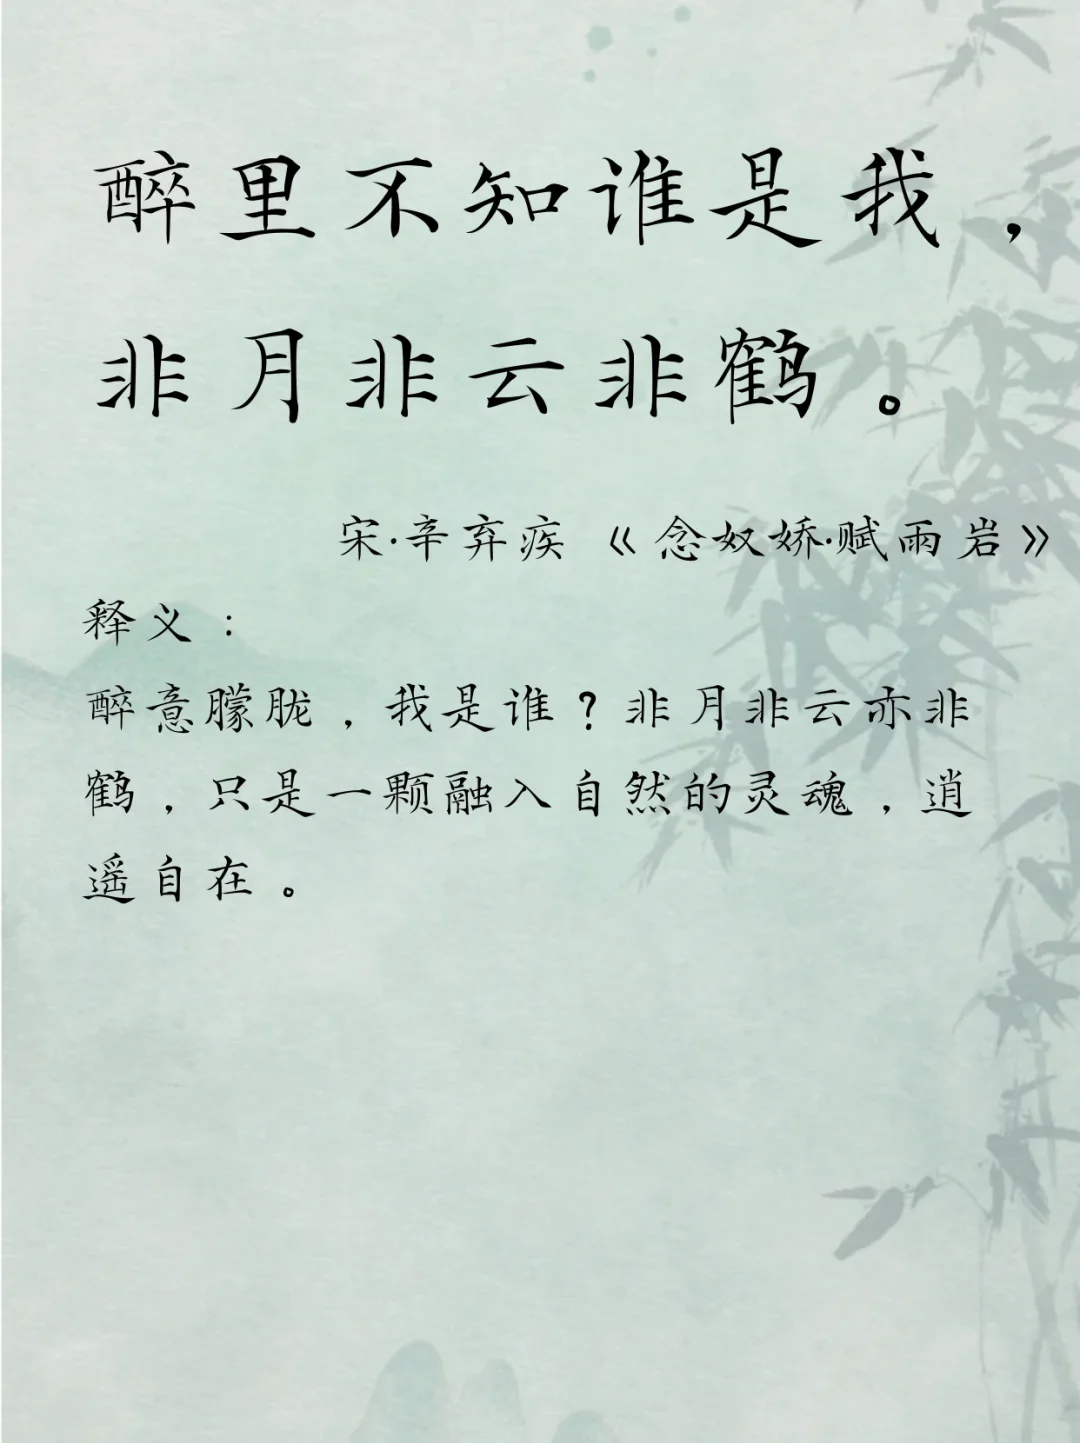 醉里不知谁是我，
非月非云非鹤。
宋·辛弃疾《念奴娇·赋雨岩》
释义：
醉意朦胧，我是谁？非月非云亦非
鹤，只是一颗融入自然的灵魂，逍
遥自在。